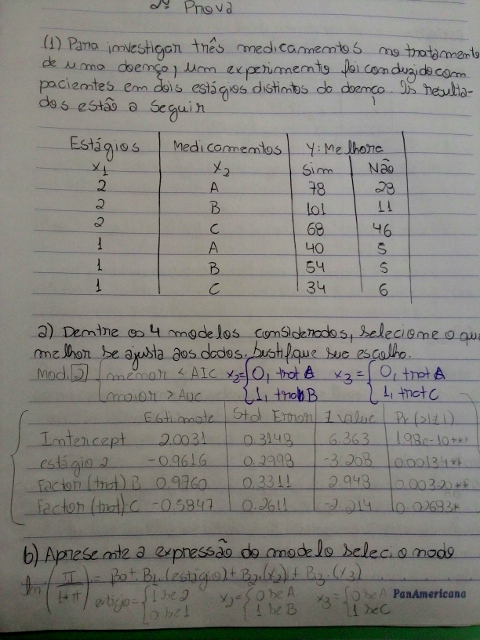 2ª Prova
(1) Para investigar três medicamentos no tratamento
de uma doença, um experimento foi conduzido com
pacientes em dois estágios distintos da doença. Os resulta-
dos estão a seguir
Estágios Medicamentos Y: Melhora
x1 x2 Sim Não
2 A 78 28
2 B 101 11
2 C 68 46
1 A 40 5
1 B 54 5
1 C 34 6
a) Dentre os 4 modelos considerados, selecione o que
melhor se ajusta aos dados. Justifique sua escolha.
Mod. 2 { menor < AIC x2= { 0, trat A x3= { 0, trat A
maior > Auc 1, trat B 1, trat C
Estimate Std Error Z value Pr(>|z|)
Intercept 2.0031 0.3148 6.363 1.98e-10***
estágio 2 -0.9616 0.2998 -3.208 0.00134**
Factor(trat) B 0.9760 0.3311 2.948 0.00320**
Factor(trat) C -0.5847 0.2611 -2.214 0.02683*
b) Apresente a expressão do modelo selecionado
ln(π/1+π) = β0+β1.(estágio)+β2.(x2)+β3.(x3)
estágio= { 1 se 2 x2= { 0 se A x3= { 0 se A
0 se 1 1 se B 1 se C
PanAmericana